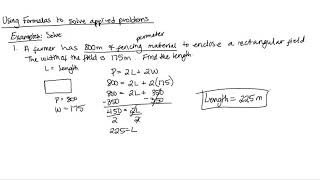 Using Formulas to solve applied problems
Examples: Solve
perimeter
1. A farmer has 800m of fencing material to enclose a rectangular field
The width of the field is 175m. Find the length
L = Length
P = 2L + 2W
800 = 2L + 2(175)
800 = 2L + 350
-350 -350
450 = 2L
2 2
225 = L
P = 800
W = 175
Length = 225m